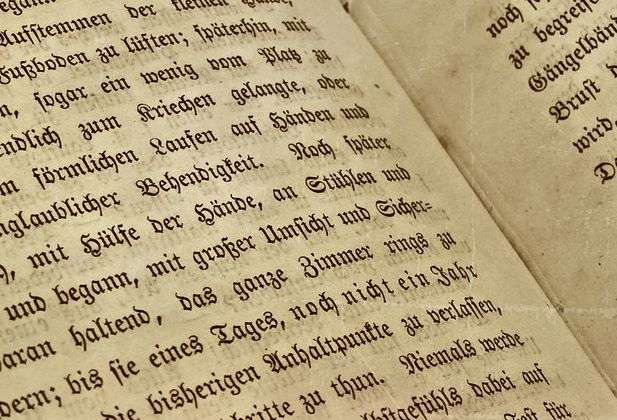 Aufstemmen der kleinen Hände,
Fußboden zu lüften; späterhin, mit
sogar ein wenig vom Platz zu
endlich zum Kriechen gelangte, oder
förmlichen Laufen auf Händen und
unglaublicher Behendigkeit. Noch später
mit Hülfe der Hände, an Stühlen und
und begann, mit großer Umsicht und Sicher=
daran haltend, das ganze Zimmer rings zu
bis sie eines Tages, noch nicht ein Jahr
die bisherigen Anhaltpunkte zu verlassen,
zu thun. Niemals werde
dabei auf
noch
zu begreifen
Gängelbänd
Brust
wird,